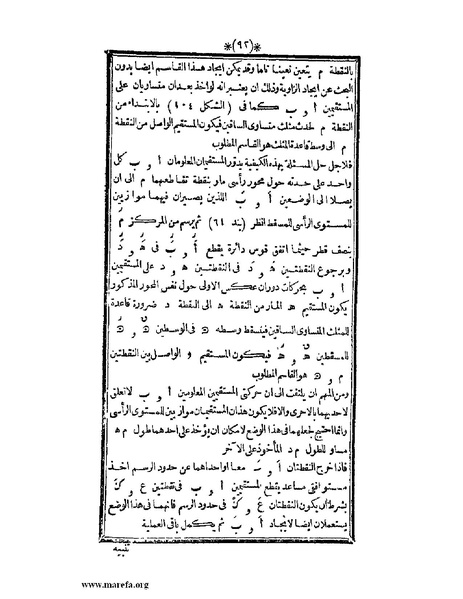 *(٩٢)*
بالنقطة م يتعين تعينا تاما وقد يمكن ايجاد هذا القاسم ايضا بدون
البحث عن ايجاد الزاوية وذلك ان يعتبر انه لو اخذ بعدان متساويان على
المستقيمين أ و ب كما فى (الشكل ١٠٤) بالابتداء من
النقطة م لحدث مثلث متساوى الساقين فيكون المستقيم الواصل من النقطة
م الى وسط قاعدة المثلث هو القاسم المطلوب
فلاجل حل المسئلة بهذه الكيفية يدور المستقيمان المعلومان أ و ب كل
واحد على حدته حول محور رأسى مار بنقطة تقاطعهما م الى ان
يصلا الى الوضعين أَ و بَ اللذين يصيران فيهما موازيين
للمستوى الرأسى للمسقط انظر (بند ٦٤) ثم يرسم من المركز م
بنصف قطر حيثما اتفق قوس دائرة يقطع أَ و بَ فى هَ و دَ
وبرجوع النقطتين هَ و دَ فى النقطتين ه و د على المستقيمين
أ و ب بحركات دوران عكس الاولى حول نفس المحور المذكور
يكون المستقيم ه د المار من النقطة ه الى النقطة د ضرورة قاعدة
للمثلث المتساوى الساقين فينسقط وسطه فى الوسطين
للمسقطين فيكون المستقيم والواصل بين النقطتين
م و هو القاسم المطلوب
ومن المهم ان يلتفت الى ان حركتى المستقيمين المعلومين أ و ب لاتعلق
لاحديهما بالاخرى والافلا يكون هذان المستقيمان موازيين للمستوى الرأسى
وانما احتيج لجعلهما فى هذا الوضع لامكان ان يؤخذ على احدهما طول م ه
مساو للطول م د المأخوذ على الآخر
فاذا خرج النقطتان أَ و بَ معا او احداهما عن حدود الرسم اخذ
مستو افقى مساعد يقطع المستقيمين أ و ب فى نقطتين ع و ك
بشرط أن يكون النقطتان فى حدود الرسم فانهما فى هذا الوضع
يستعملان ايضا لايجاد أَ و بَ ثم يكمل باقى العملية
تنبيه
www.marefa.org